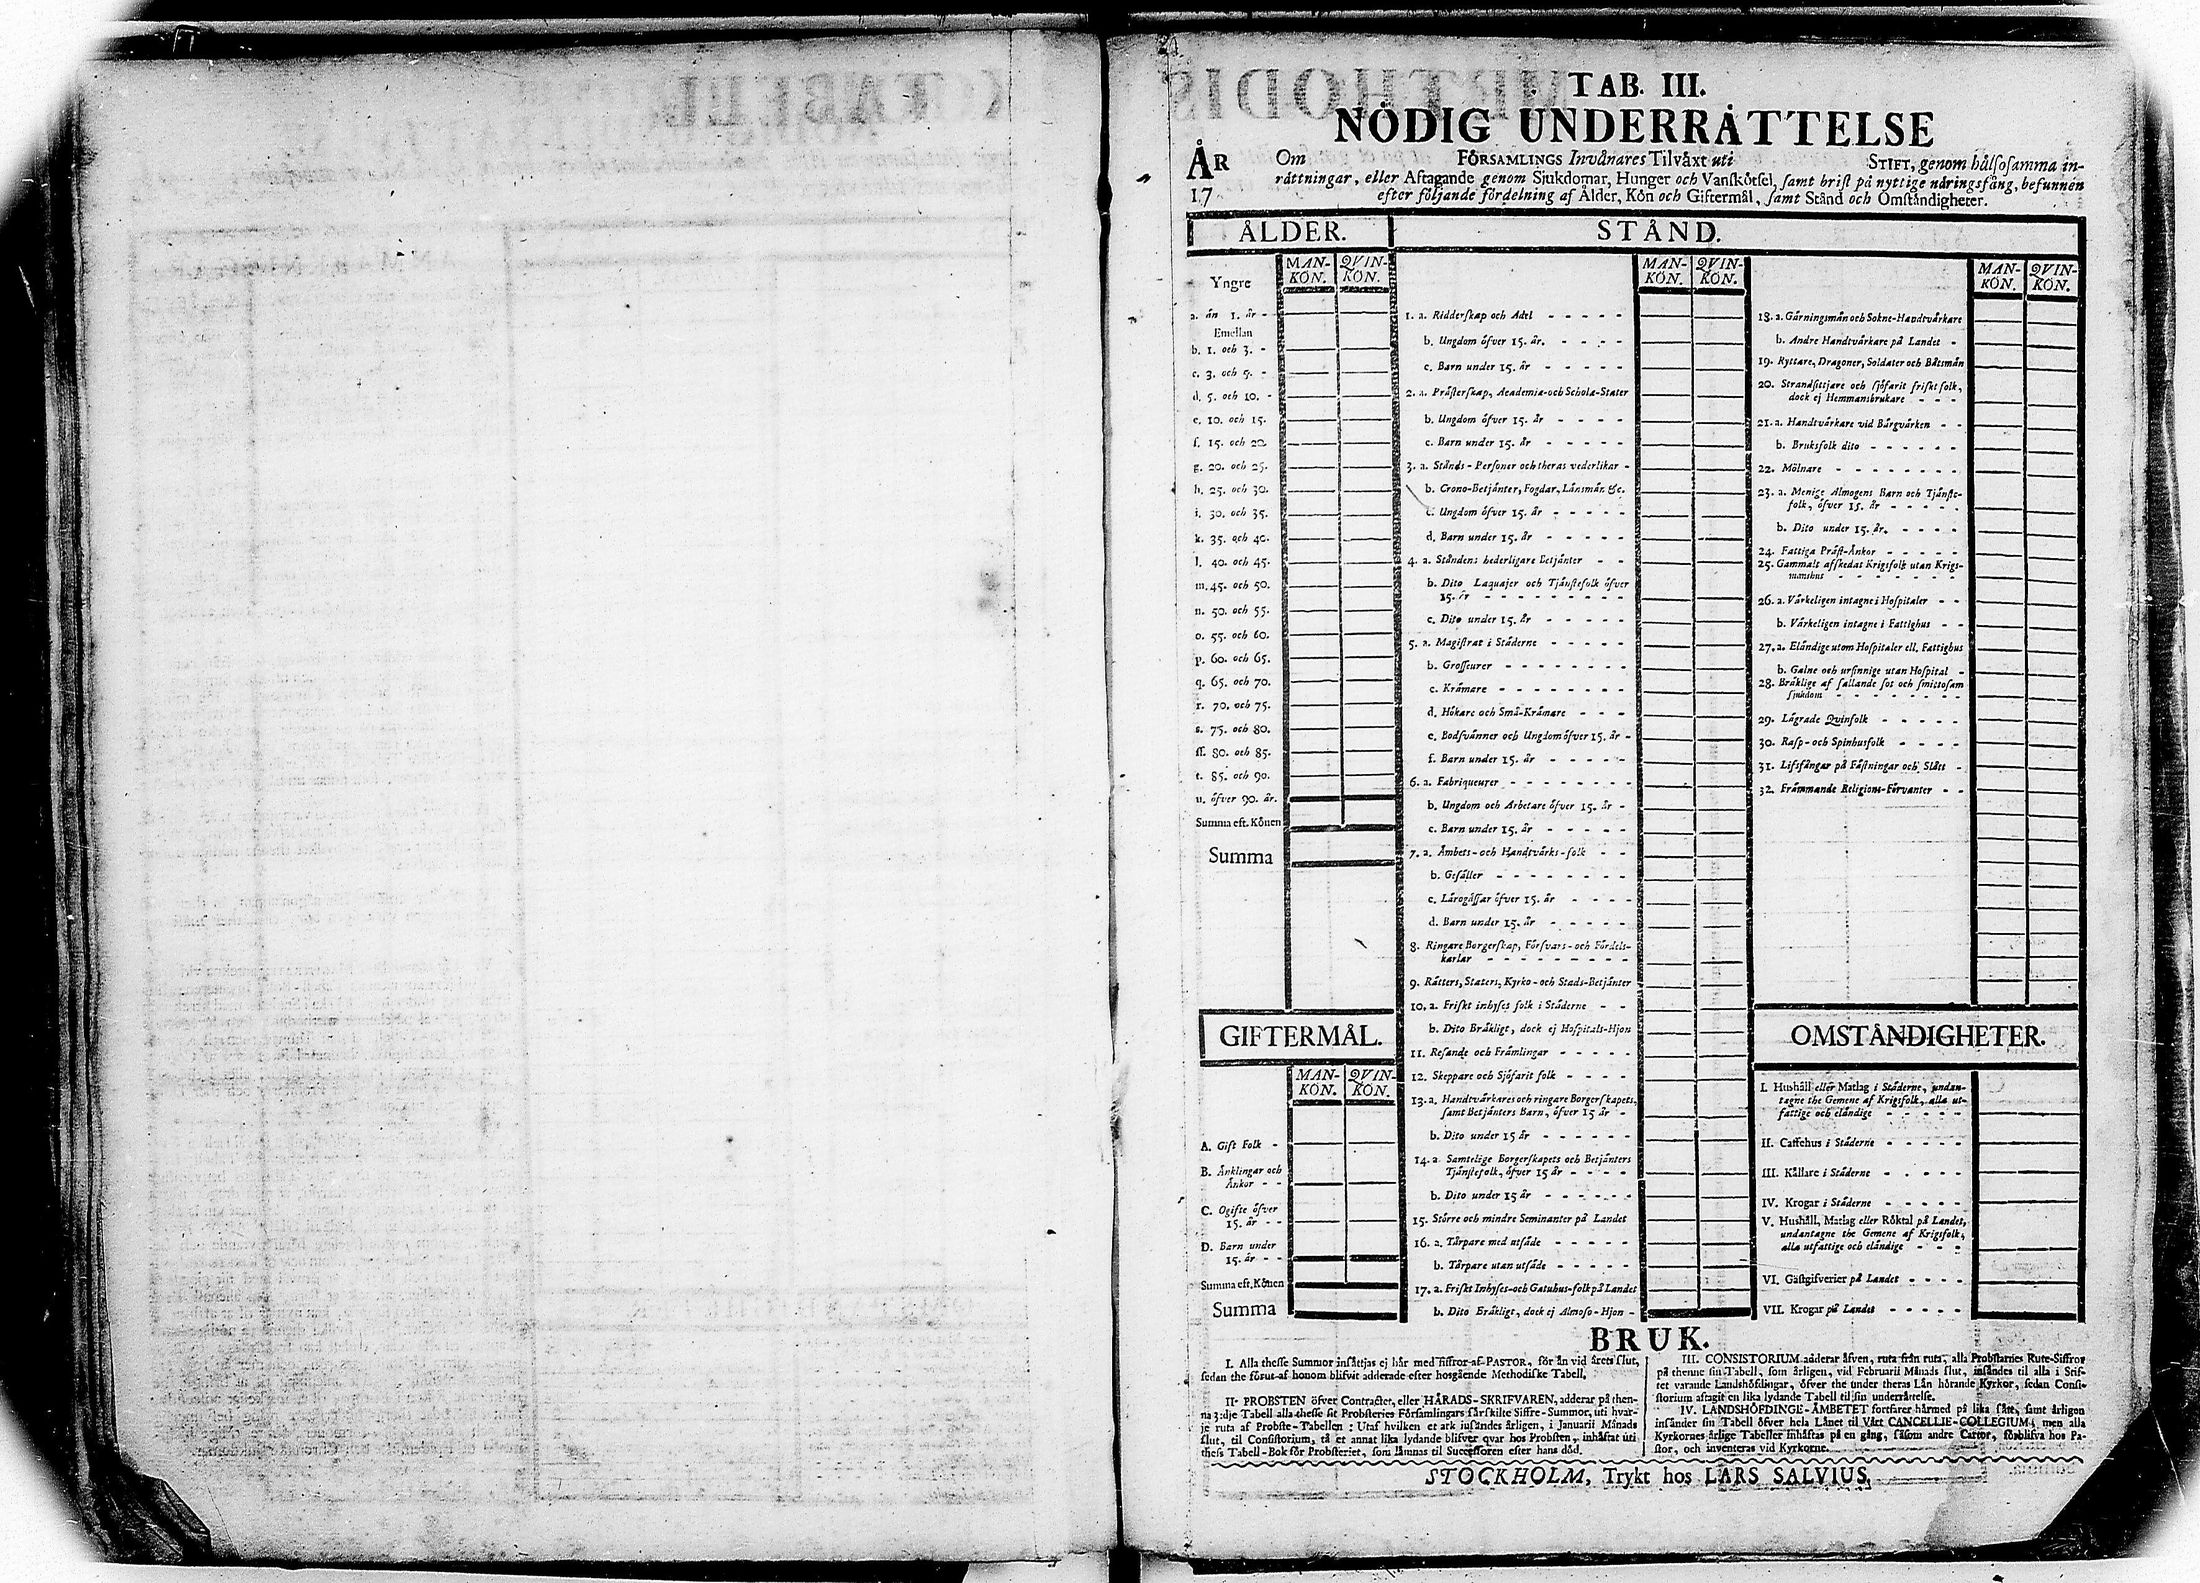 TAB. III.
NÖDIG UNDERRÅTTELSE
ÅR
17
Om FÖRSAMLINGS Invånares Tilvåxt uti STIFT, genom hålsosamma in-
råttningar, eller Aftagande genom Sjukdomar, Hunger och Vanskötsel, samt brist på nyttige nåringsfång, befunnen
efter följande fördelning af Ålder, Kön och Giftermål, samt Stånd och Omståndigheter.
ÅLDER.
Yngre
MAN-
KÖN.
QVIN-
KÖN.
a. ån 1. år -
Emellan
b. 1. och 3. -
c. 3. och 5. -
d. 5. och 10. -
e. 10. och 15.
f. 15. och 20.
g. 20. och 25.
h. 25. och 30.
i. 30. och 35.
k. 35. och 40.
l. 40. och 45.
m. 45. och 50.
n. 50. och 55.
o. 55. och 60.
p. 60. och 65.
q. 65. och 70.
r. 70. och 75.
s. 75. och 80.
ss. 80. och 85.
t. 85. och 90.
u. öfver 90. år.
Summa eft. Könen
Summa
GIFTERMÅL.
MAN-
KÖN.
QVIN-
KÖN.
A. Gift Folk -
B. Ånklingar och
Ånkor - -
C. Ogifte öfver
15. år - -
D. Barn under
15. år - -
Summa eft. Könen
Summa
STÅND.
MAN-
KÖN.
QVIN-
KÖN.
1. a. Ridderskap och Adel - - - - -
b. Ungdom öfver 15. år. - - - -
c. Barn under 15. år - - - - -
2. a. Pråsterskap, Academiæ-och Scholæ-Stater
b. Ungdom öfver 15. år - - - -
c. Barn under 15. år - - - - -
3. a. Stånds-Personer och theras vederlikar -
b. Crono-Betjånter, Fogdar, Lånsmån &c.
c. Ungdom öfver 15. år - - - -
d. Barn under 15. år - - - - -
4. a. Ståndens hederligare Betjånter - - -
b. Dito Laquajer och Tjånstefolk öfver
15. år - - - - - - - - -
c. Dito under 15. år - - - - -
5. a. Magistrat i Ståderne - - - - -
b. Grosseurer - - - - - - -
c. Kråmare - - - - - - - -
d. Hökare och Små-Kråmare - - -
e. Bodsvånner och Ungdom öfver 15. år -
f. Barn under 15. år - - - - -
6. a. Fabriqueurer - - - - - - -
b. Ungdom och Arbetare öfver 15. år -
c. Barn under 15. år - - - - -
7. a. Åmbets-och Handtvårks-folk - -
b. Gesåller - - - - - - - -
c. Lårogåssar öfver 15. år - - - -
d. Barn under 15. år - - - - -
8. Ringare Borgerskap, Försvars-och Fördels-
karlar - - - - - - - - -
9. Råtters, Staters, Kyrko-och Stads-Betjånter
10. a. Friskt inhyses folk i Ståderne - -
b. Dito Bråkligt, dock ej Hospitals-Hjon
11. Resande och Fråmlingar - - - - -
12. Skeppare och Sjöfarit folk - - - -
13. a. Handtvårkares och ringare Borgerskapets,
samt Betjånters Barn, öfver 15 år -
b. Dito under 15 år - - - - - -
14. a. Samtelige Borgerskapets och Betjånters
Tjånstefolk, öfver 15 år - - - -
b. Dito under 15 år - - - - - -
15. Större och mindre Seminanter på Landet
16. a. Tårpare med utsåde - - - - -
b. Tårpare utan utsåde - - - - -
17. a. Friskt Inhyses-och Gatuhus-folk på Landet
b. Dito Bråkligt, dock ej Almoso-Hjon -
MAN-
KÖN.
QVIN-
KÖN.
18. a. Gårningsmån och Sokne-Handtvårkare
b. Andre Handtvårkare på Landet -
19. Ryttare, Dragoner, Soldater och Båtsmån
20. Strandsittjare och sjöfarit friskt folk,
dock ej Hemmansbrukare - - -
21. a. Handtvårkare vid Bårgvårken - -
b. Bruksfolk dito - - - - - -
22. Mölnare - - - - - - - -
23. a. Menige Almogens Barn och Tjånste-
folk, öfver 15. år - - - - -
b. Dito under 15. år. - - - -
24. Fattiga Pråst-Ånkor - - - - -
25. Gammalt afskedat Krigsfolk utan Krigs-
manshus - - - - - - - -
26. a. Vårkeligen intagne i Hospitaler - -
b. Vårkeligen intagne i Fattighus - -
27. a. Elåndige utom Hospitaler ell. Fattighus
b. Galne och ursinnige utan Hospital -
28. Bråklige af fallande sot och smittosam
sjukdom - - - - - - - -
29. Lågrade Qvinfolk - - - - -
30. Rasp-och Spinhusfolk - - - -
31. Lifsfångar på Fåstningar och Slått -
32. Fråmmande Religions-Förvanter - -
OMSTÅNDIGHETER.
I. Hushåll eller Matlag i Ståderne, undan-
tagne the Gemene af Krigsfolk, alla ut-
fattige och elåndige - - - - -
II. Caffehus i Ståderne - - - - -
III. Kållare i Ståderne - - - - -
IV. Krogar i Ståderne - - - - -
V. Hushåll, Matlag eller Röktal på Landet,
undantagne the Gemene af Krigsfolk,
alla utfattige och elåndige - - -
VI. Gåstgifverier på Landet - - - -
VII. Krogar på Landet - - - - -
BRUK.
I. Alla thesse Summor insåttjas ej hår med siffror af PASTOR, för ån vid årets slut,
sedan the förut af honom blifvit adderade efter hosgående Methodiske Tabell.
II. PROBSTEN öfver Contractet, eller HÅRADS-SKRIFVAREN, adderar på then-
na 3:dje Tabell alla thesse sit Probsteries Församlingars sårskilte Siffre-Summor, uti hvar-
je ruta af Probste-Tabellen: Utaf hvilken et ark insåndes årligen, i Januarii Månads
slut, til Consistorium, tå et annat lika lydande blifver qvar hos Probsten, inhåftat uti
thess Tabell-Bok för Probsteriet, som låmnas til Successoren efter hans död.
III. CONSISTORIUM adderar åfven, ruta från ruta, alla Probstaries Rute-Siffror
på thenne sin Tabell, som årligen, vid Februarii Månads slut, insåndes til alla i Stif-
tet varande Landshöfdingar, öfver the under theras Lån hörande Kyrkor, sedan Consi-
storium aftagit en lika lydande Tabell til sin underråttelse.
IV. LANDSHÖFDINGE-ÅMBETET fortfarer hårmed på lika sått, samt årligen
insånder sin Tabell öfver hela Lånet til Vårt CANCELLIE-COLLEGIUM; men alla
Kyrkornes årlige Tabeller inhåftas på en gång, såsom andre Cartor, förblifva hos Pa-
stor, och inventeras vid Kyrkorne.
STOCKHOLM, Trykt hos LARS SALVIUS.